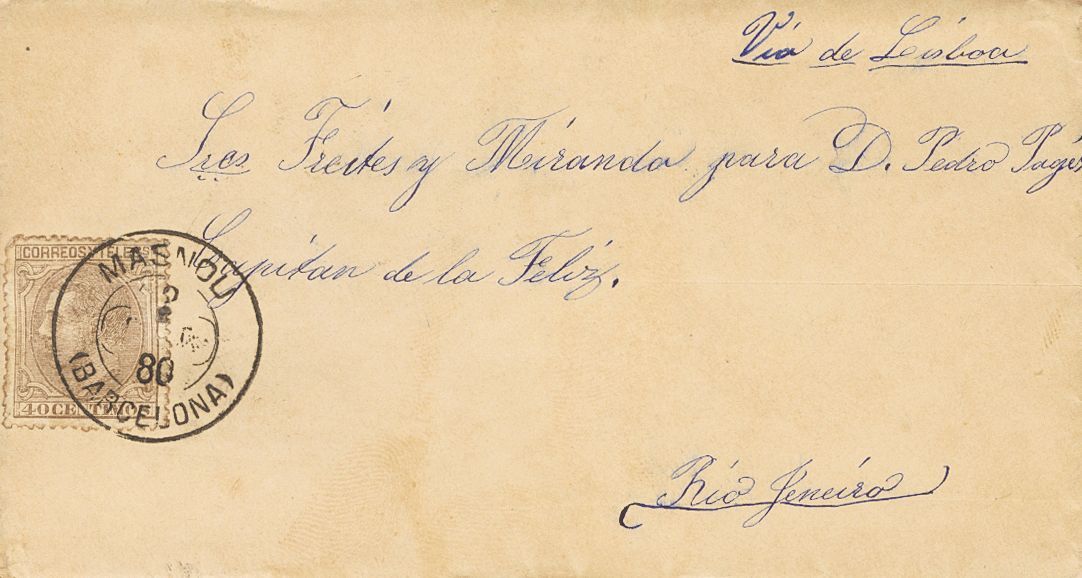 Via de Lisboa
Sres Freites y Miranda para D. Pedro Pagés
Capitan de la Feliz.
CORREOS Y TELEGS
MASNOU
80
(BARCELONA)
40 CENTIMOS
Rio Jeneiro